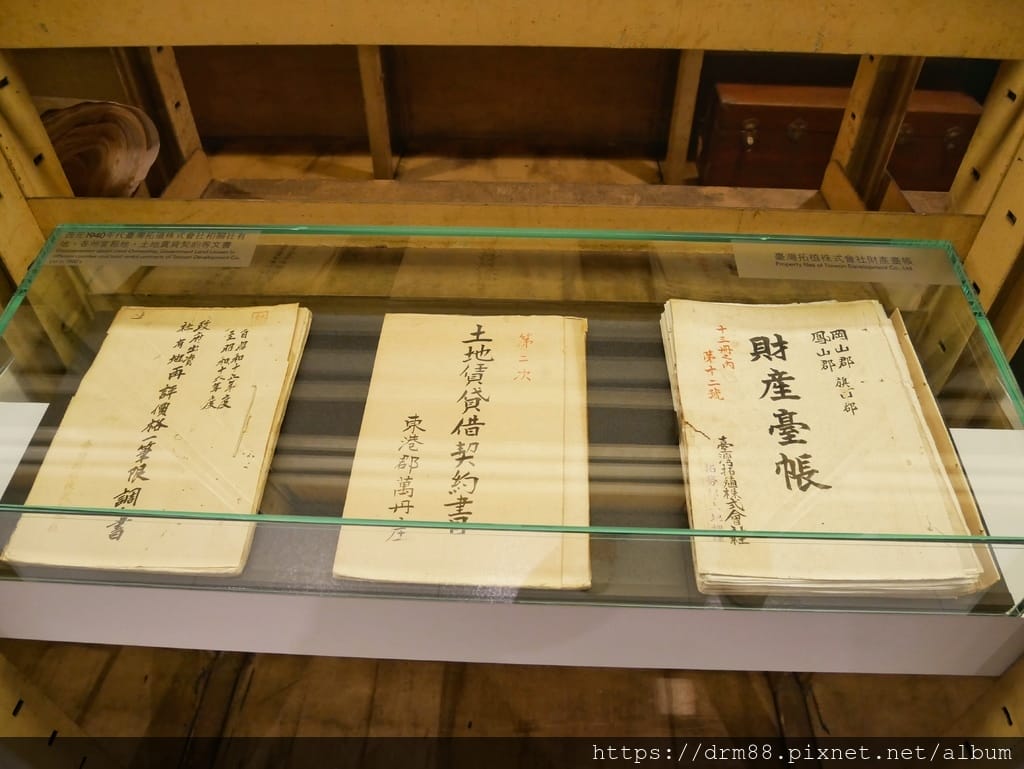 1940年代臺灣拓植株式會社相關社有
地、各州官租地、土地賃貸契約等文書
臺灣拓植株式會社財產臺帳
Property files of Taiwan Development Co., Ltd
自昭和十三年度
至昭和十六年度
政府出資
社有地再評價格一筆帳調書
第二次
土地賃貸借契約書
東港郡萬丹庄
岡山郡 旗山郡
鳳山郡
財產臺帳
十三冊之內
第十二號
臺灣拓殖株式會社
https://drm88.pixnet.net/album